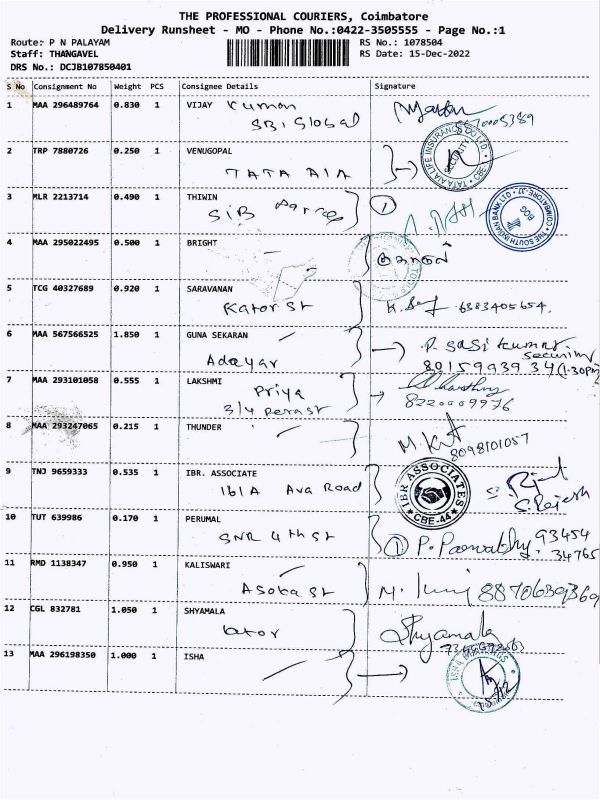 THE PROFESSIONAL COURIERS, Coimbatore
Delivery Runsheet - MO - Phone No.:0422-3505555 - Page No.:1
Route: P N PALAYAM RS No.: 1078504
Staff: THANGAVEL RS Date: 15-Dec-2022
DRS No.: DCJB107850401
S No Consignment No Weight PCS Consignee Details Signature
1 MAA 296489764 0.830 1 VIJAY Kumar
SBI Global
2 TRP 7880726 0.250 1 VENUGOPAL
TATA AIA
TATA AIA LIFE INSURANCE CO LTD CBE SECURITY
3 MLR 2213714 0.490 1 THIWIN 1
SIB
THE SOUTH INDIAN BANK LTD COIMBATORE-37 BOG
4 MAA 295022495 0.500 1 BRIGHT
5 TCG 40327689 0.920 1 SARAVANAN
Kator St 6383405654
6 MAA 567566525 1.850 1 GUNA SEKARAN P. Sasi Kumar
Adayar Security
8015993934 (1.30PM)
7 MAA 293101058 0.555 1 LAKSHMI
Priya
3/4 8220009976
8 MAA 293247065 0.215 1 THUNDER
8098101057
9 TNJ 9659333 0.535 1 IBR. ASSOCIATE
161A Ava Road S. Rajesh
IBR ASSOCIATES CBE-44
10 TUT 639986 0.170 1 PERUMAL
SNR 4th St 1 P. Parvathy 93454
34765
11 RMD 1138347 0.950 1 KALISWARI
Asoka St 8870639369
12 CGL 832781 1.050 1 SHYAMALA Shyamala
Kator
13 MAA 296198350 1.000 1 ISHA
ISHA